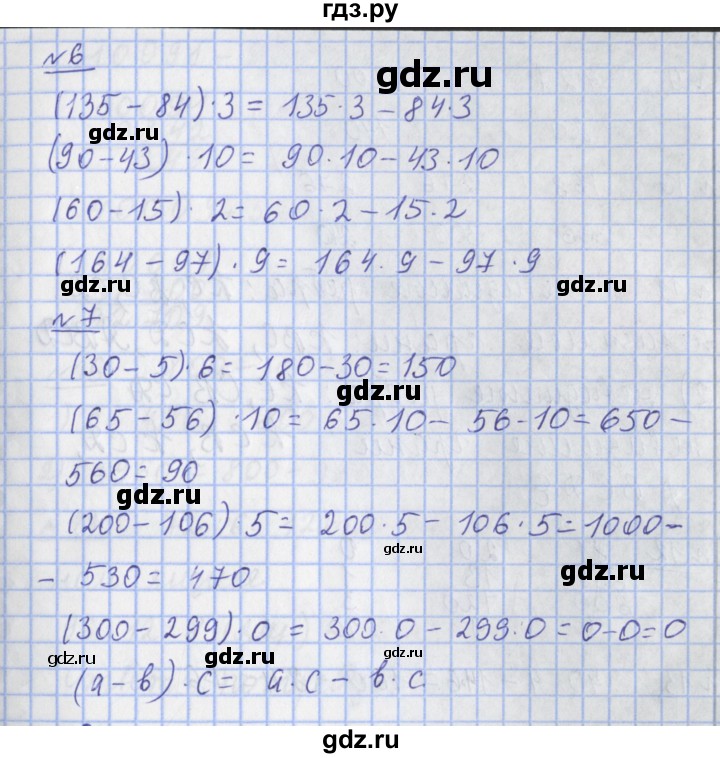 гдз.ру
№6
gdz.ru
(135 - 84)·3 = 135·3 - 84·3
gdz.ru
(90-43) ·10= 90·10-43·10
(60-15)· 2=60·2-15·2
(164-97)·9= 164·9-97·9
gdz.ru gdz.ru
№7
(30-5)·6= 180-30=150
gdz.ru
(65-56) ·10= 65·10- 56-10=650-
560= 90
gdz.ru
(200-106)·5= 200·5- 106·5=1000-
gdz.ru
- 530= 470
gdz.ru
(300-299)·0 = 300·0-299·0=0-0=0
gdz.ru gdz.ru gdz.ru
(a-b)·c= a·c- b·c
gdz.ru